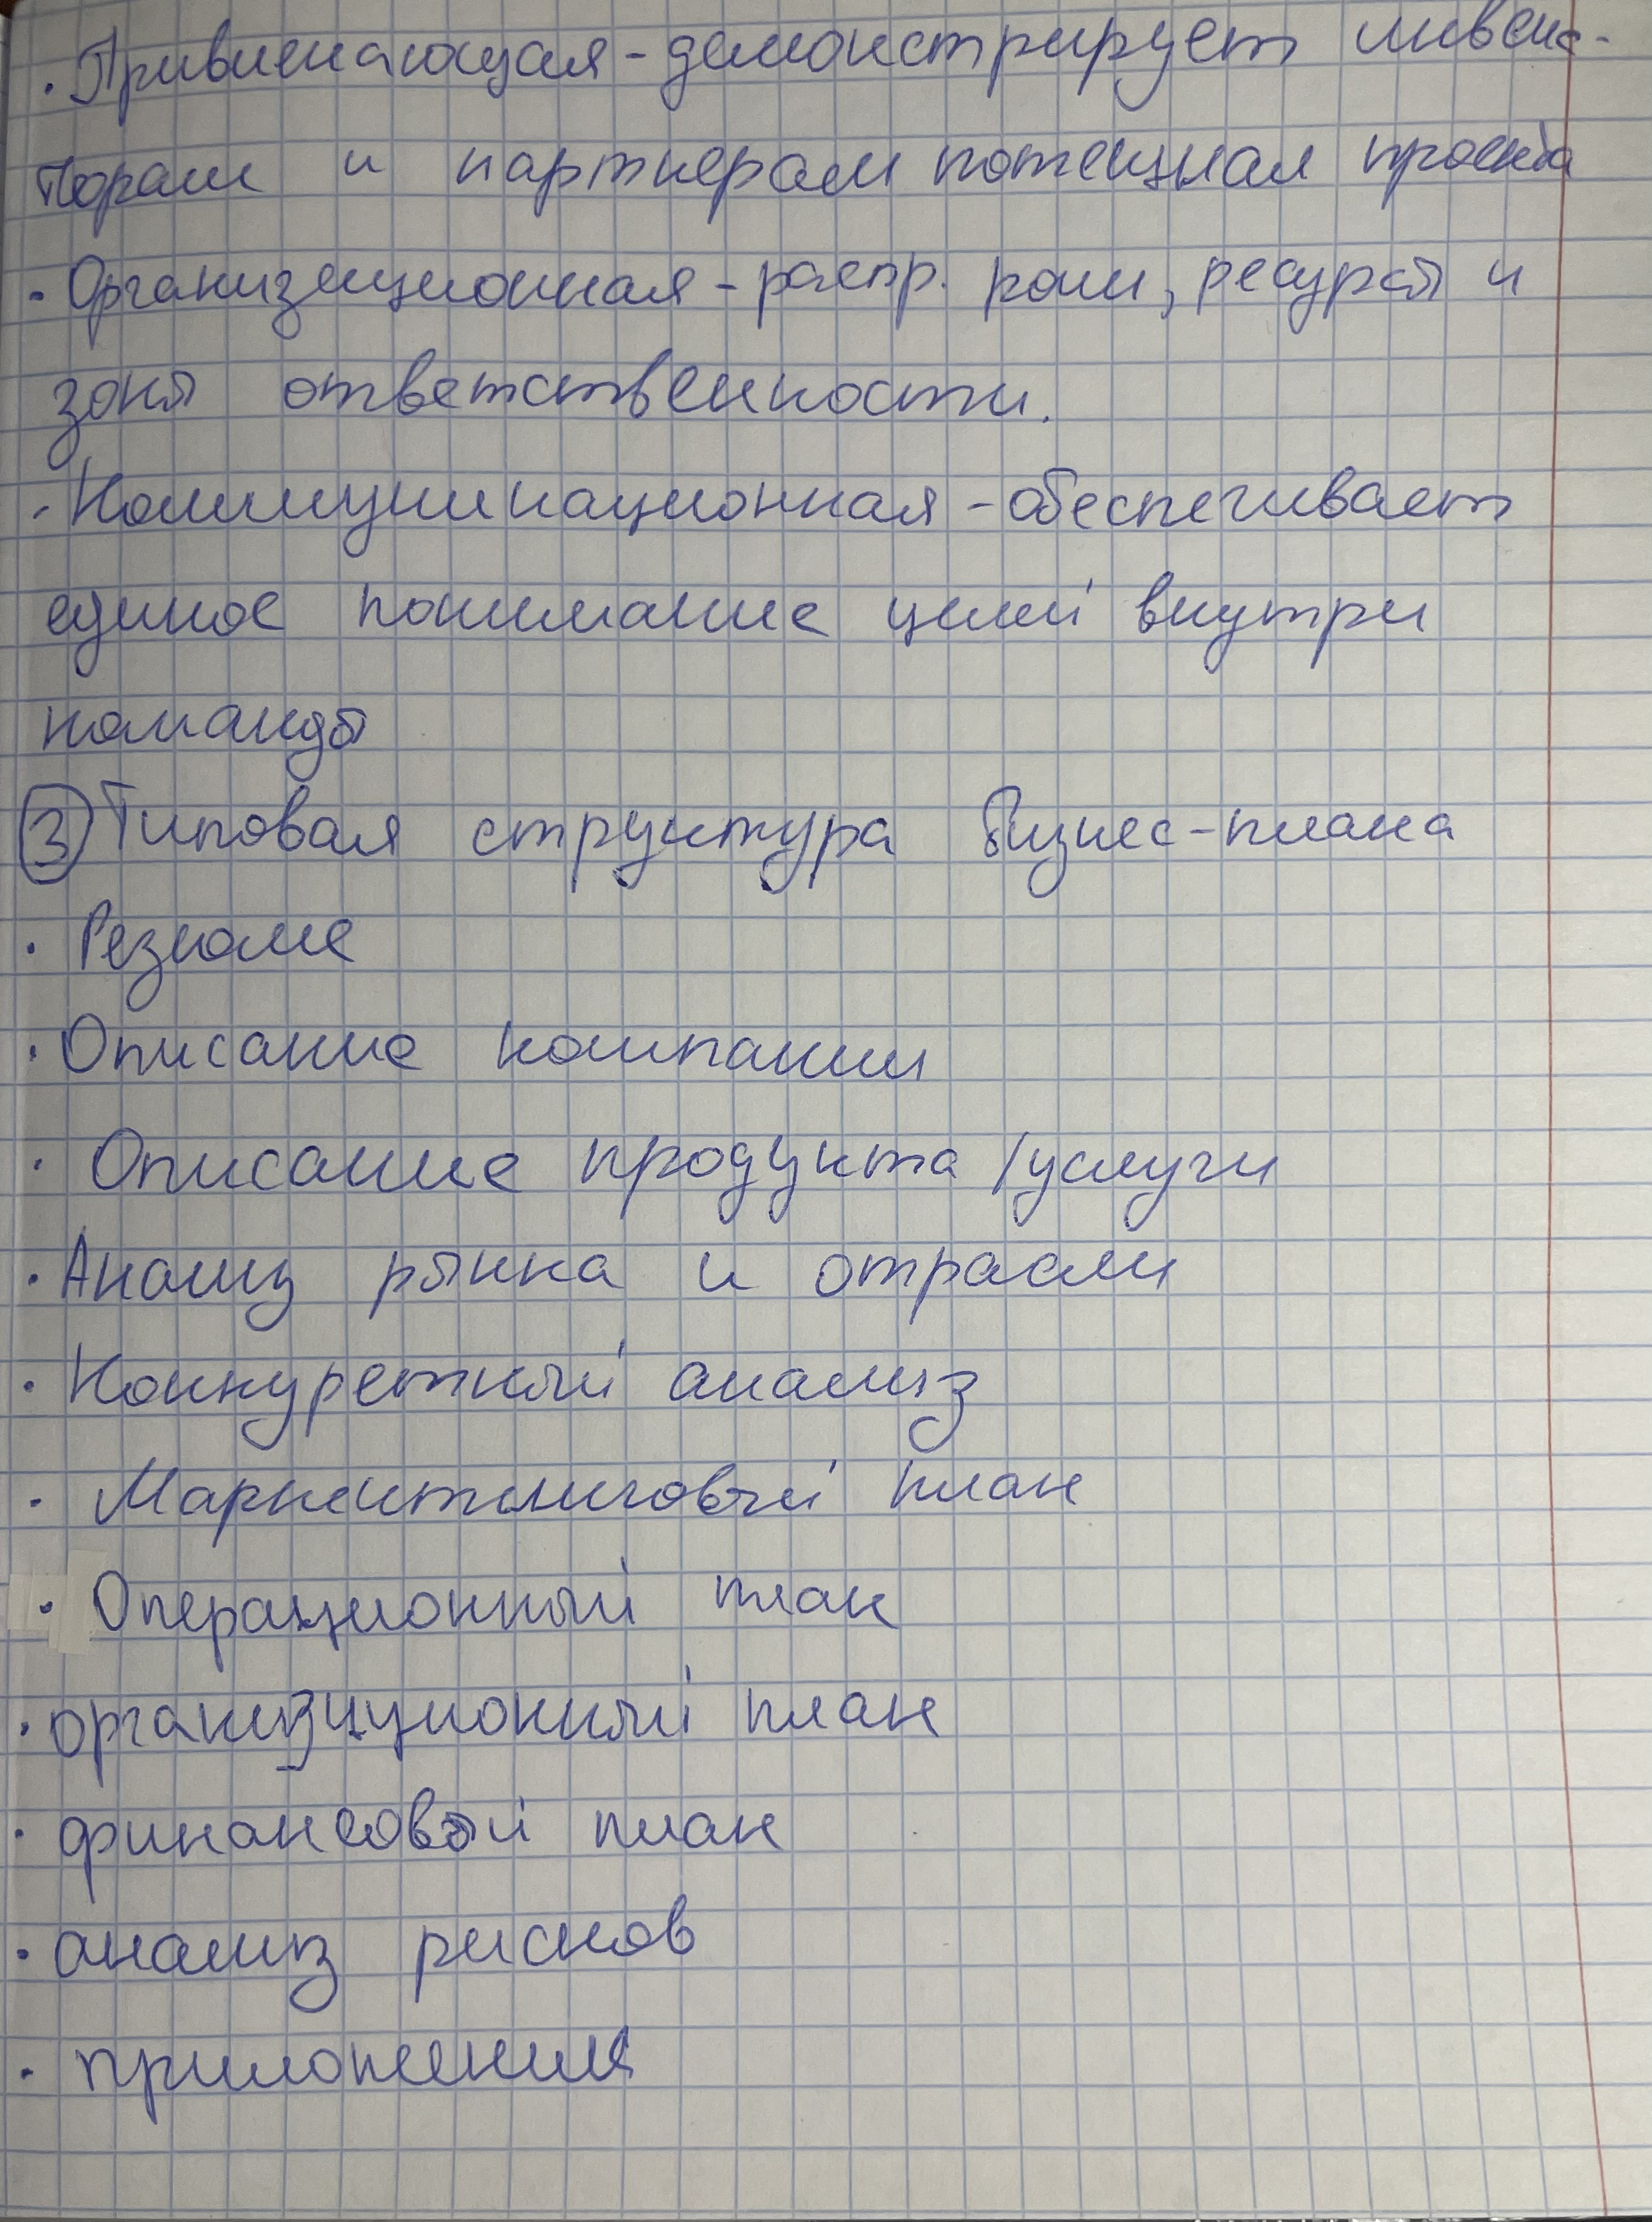 · Привлекающая - демонстрирует инвес-
торам и партнерам потенциал проекта
· Организационная - распр. роли, ресурсы и
зоны ответственности.
· Коммуникационная - обеспечивает
единое понимание целей внутри
команды
③ Типовая структура бизнес-плана
· Резюме
· Описание компании
· Описание продукта /услуги
· Анализ рынка и отрасли
· Конкуретный анализ
· Маркеитинговый план
· Операционный план
· организиционный план
· финансовый план
· анализ рисков
· приложения